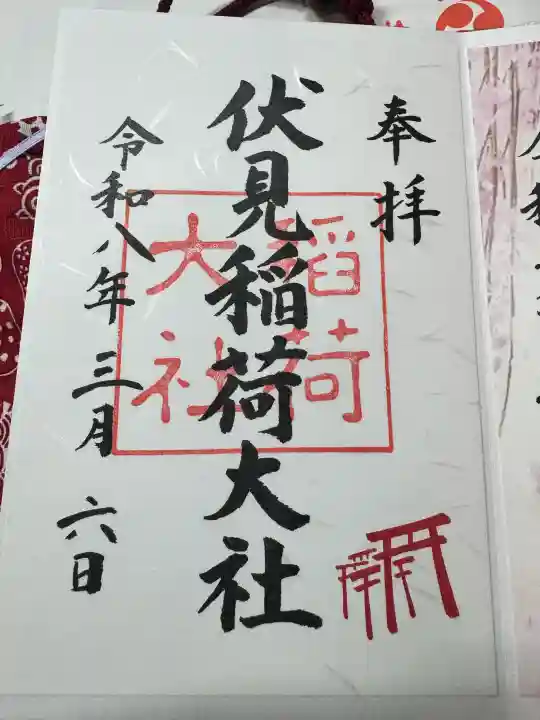 奉拝
伏見稲荷大社
稲荷
大社
令和八年 三月 六日